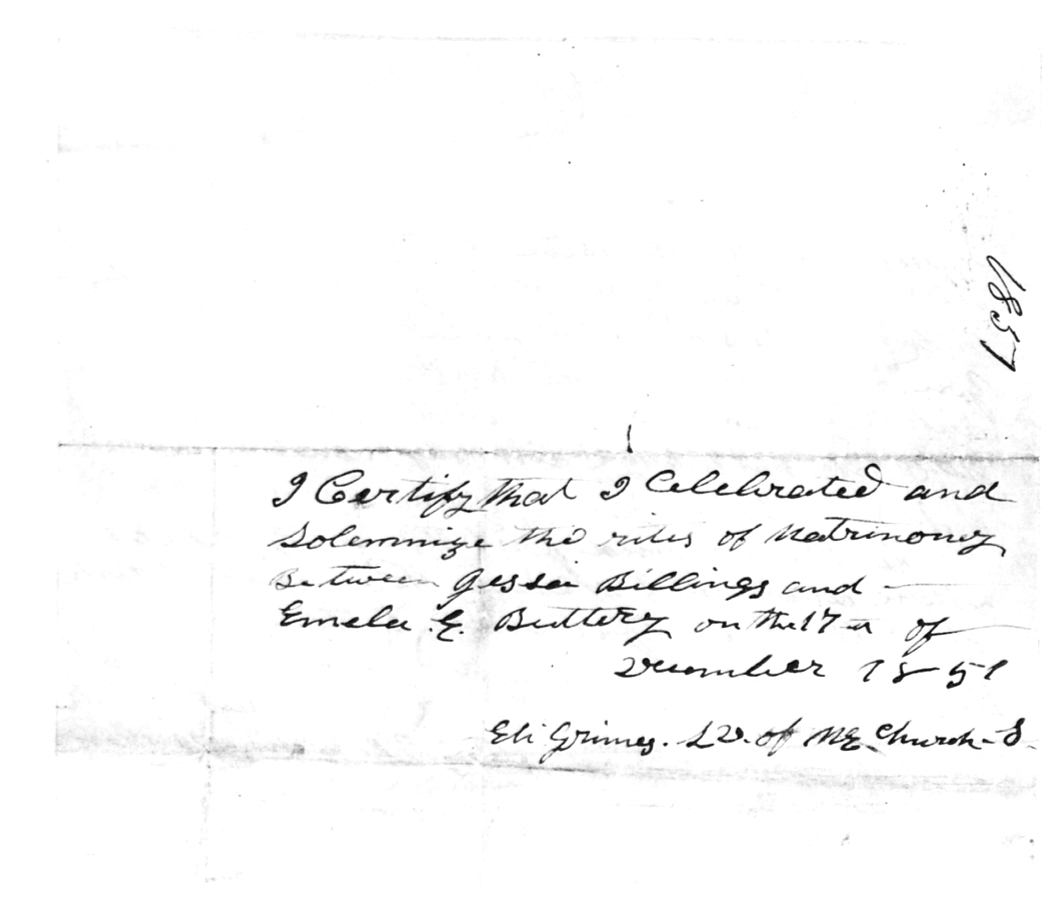 1851
I Certify that I Celebrated and
Solemnize the rites of Matrimony
Between Jessee Billings and
Emela E. Buttery on the 17 of
December 1851
Eli Grimes. L D. of ME Church - S.